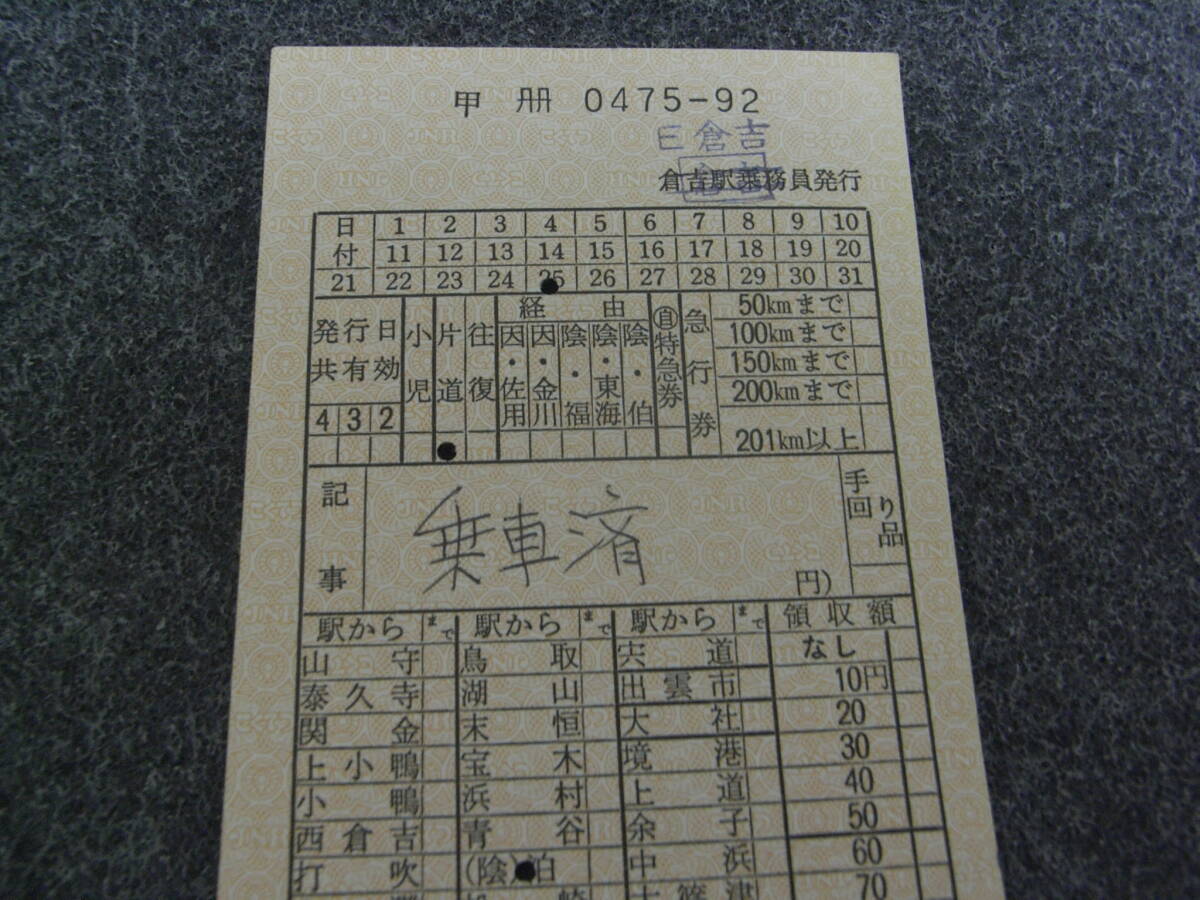 甲 册 0475-92
E 倉吉
倉吉駅乗務員発行
日付 1 2 3 4 5 6 7 8 9 10
11 12 13 14 15 16 17 18 19 20
21 22 23 24 25 26 27 28 29 30 31
発行日共有効 4 3 2
小児
片道
往復
経由
因・佐用
因・金川
陰・福
陰・東海
陰・伯
自特急券
急行券
50kmまで
100kmまで
150kmまで
200kmまで
201km以上
記事
乗車済
円)
手回り品
駅から まで 駅から まで 駅から まで 領収額
山守 鳥取 宍道 なし
泰久寺 湖山 出雲市 10円
関金 末恒 大社 20
上小鴨 宝木 境港 30
小鴨 浜村 上道 40
西倉吉 青谷 余子 50
打吹 (陰)泊 中浜 60
大篠津 70